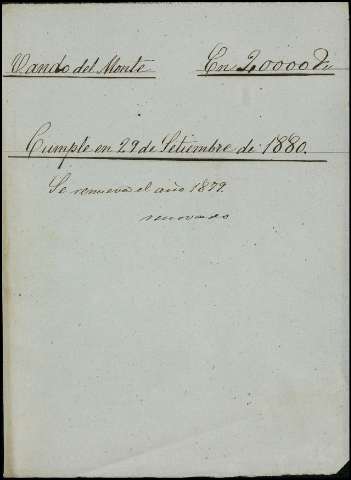 Vando del Monte En 20000 
Cumple en 29 de Setiembre de 1880.
Se renueva el año 1879.
renovado